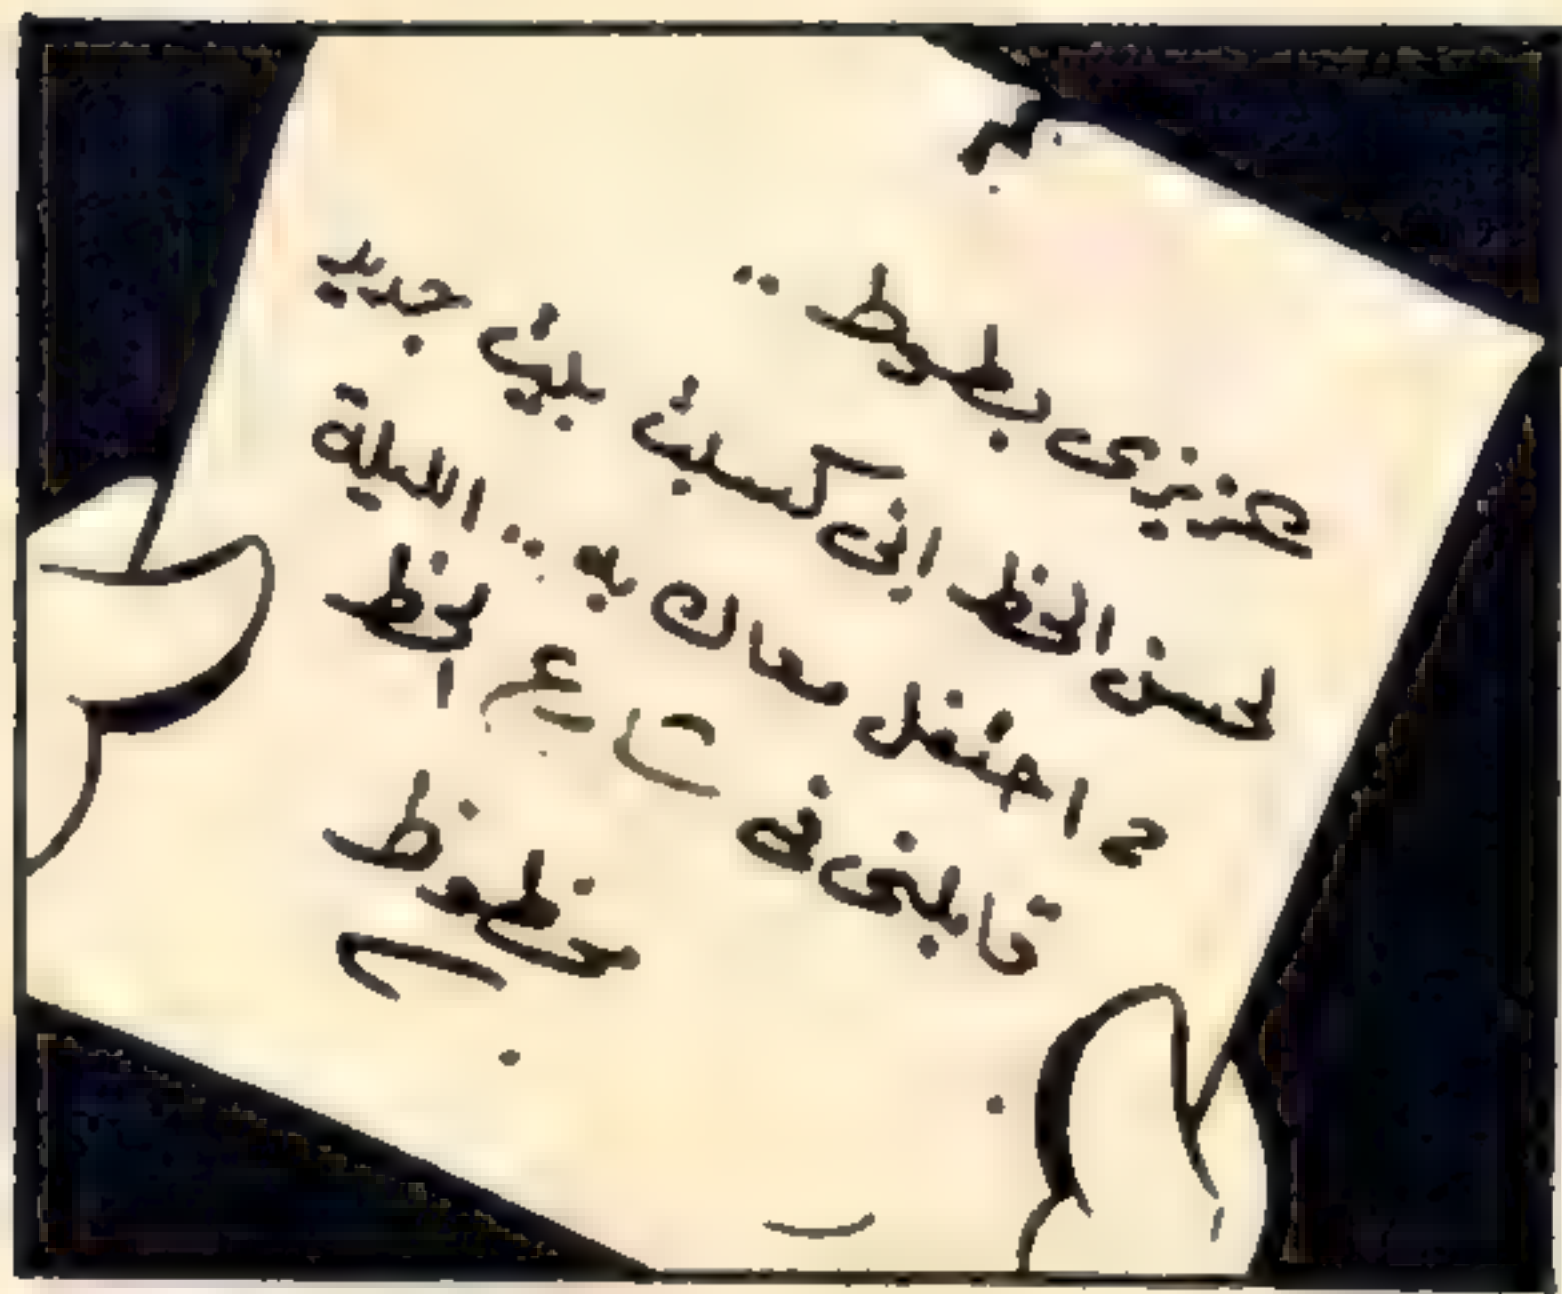 عزيزى بطوط ..
لحسن الحظ انى كسبت بيت جديد
ح احتفل معاك بيه .. الليلة
قابلنى فى
محظوظ